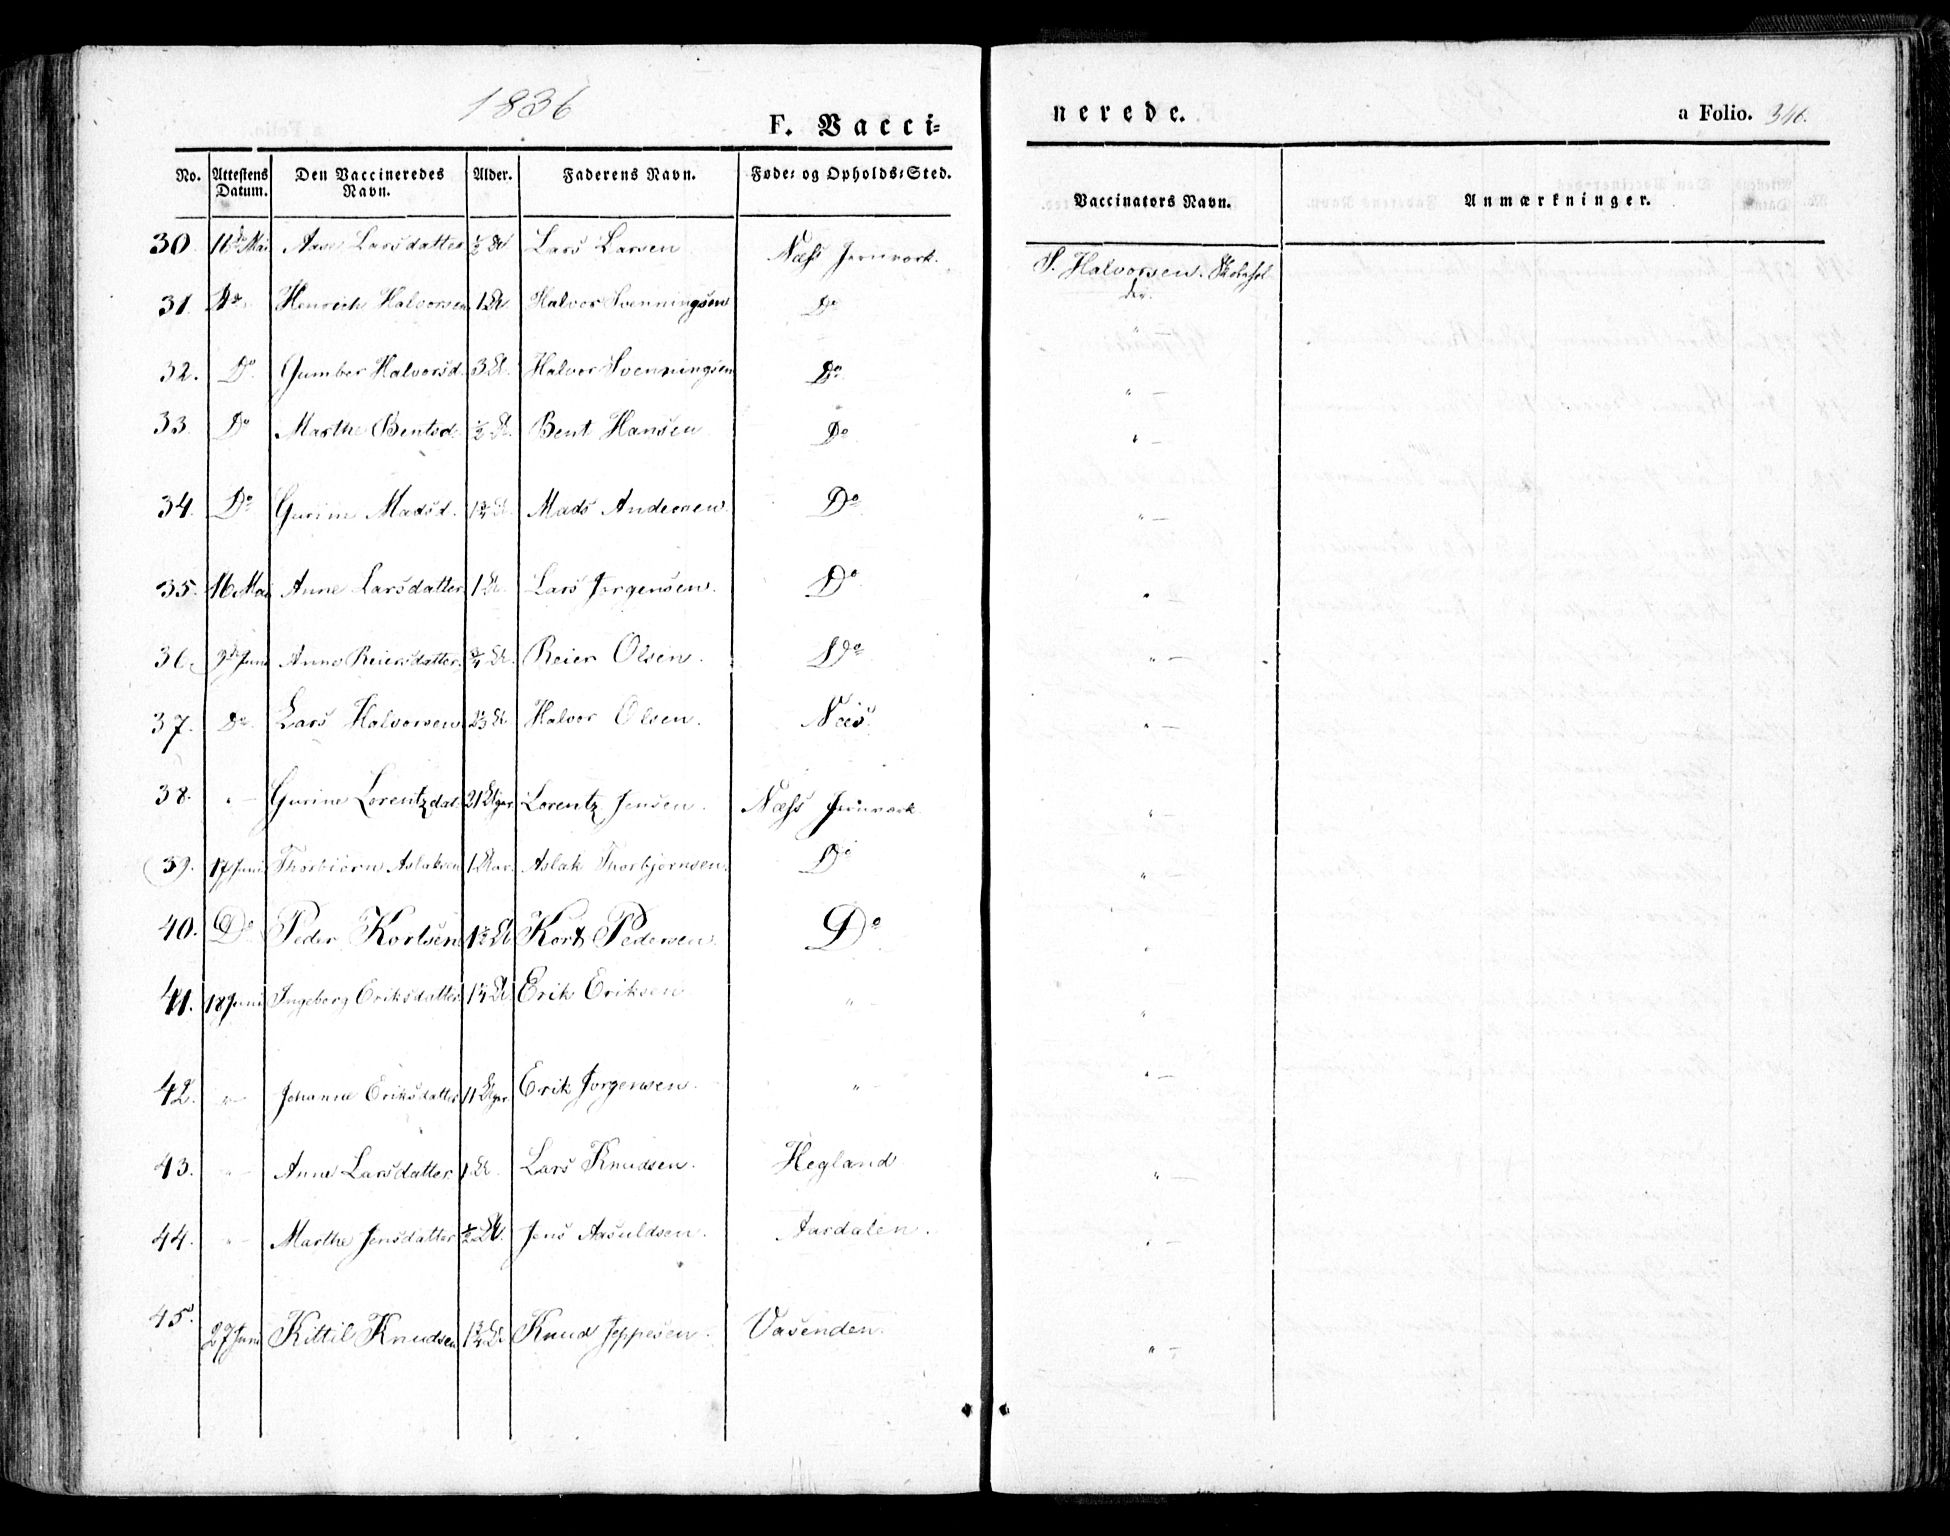 1836
F. Vacci=
nerede.
a Folio. 346.
No. Attestens Datum. Den Vaccineredes Navn. Alder. Faderens Navn. Føde= og Opholds=Sted. Vaccinators Navn. Anmærkninger.
30 Mai Aase Larsdatter ½ Lars Larsen Næss Jernverk. S. Halvorsen. Skolehol
der.
31. Do Henrich Halvorsen 1 Halvor Svenningsen Do " —
32. Do Gumber Halvorsd. 3 Halvor Svenningsen Do " —
33. Do Marthe Bentsd. ½ Bent Hansen Do " —
34. Do Gurine Madsd. Mads Andersen Do " —
35. 16 Mai Anne Larsdatter 1 Lars Jørgensen. Do "
36. Juni Anne Reiersdatter Reier Olsen. Do " —
37. Do Lars Halvorsen Halvor Olsen. Næs " —
38. " — Gurine Lorentzdat. Lorentz Jensen. Næss Jernverk " —
39. 17 Juni Thorbiørn Aslaksen 1 Aslak Thorbjørnsen. Do " —
40. Do Peder Kortsen 1½ Kort Pedersen. Do "
41. 18 Juni Ingeborg Eriksdatter Erik Eriksen " — "
42. " — Johanne Eriksdatter 11 Erik Jørgensen. " — " —
43. " — Anne Larsdatter 1 Lars Knudsen. Hegland " —
44. " — Marthe Jensdatter ½ Jens Aasuldsen. Aardalen. " —
45. 27 Juni Kittil Knudsen Knud Jeppesen. Vasenden. " —